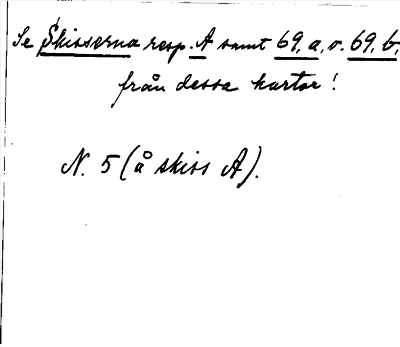 Se Skisserna resp. A samt 69, a, o. 69, b,
från dessa kartor!
N. 5 (å skiss A).